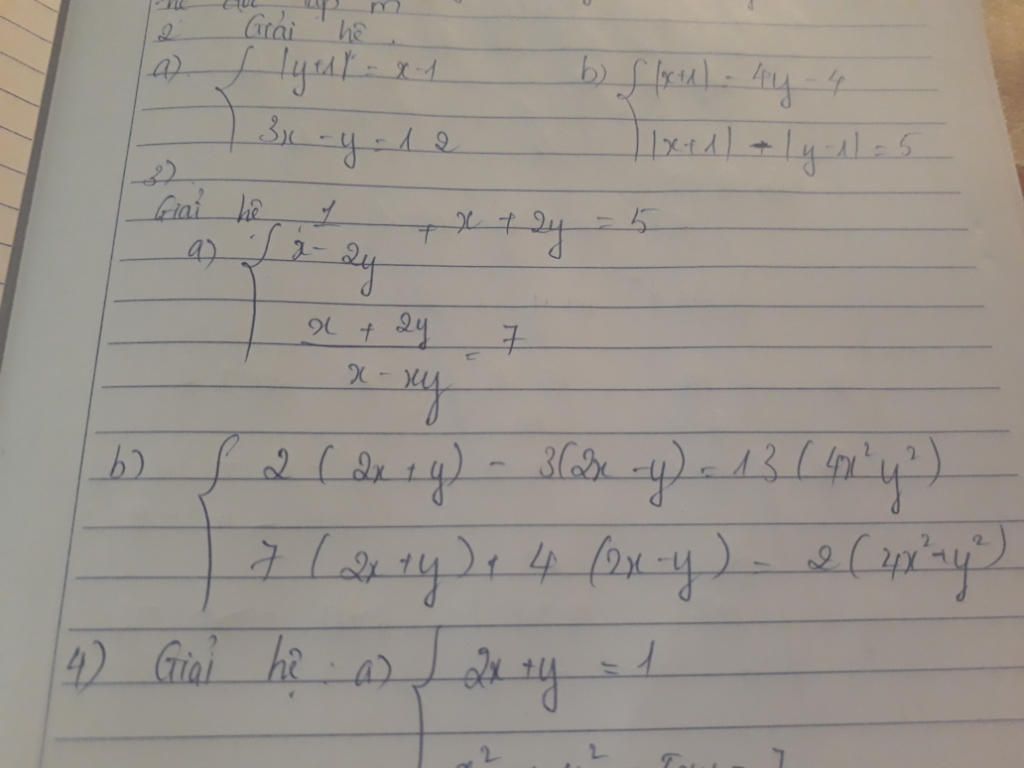 2 Giải hệ.
a) { |y+1| = x-1 b) { |x+1| = 4y - 4
3x - y = 12 |x+1| + |y-1| = 5
3)
Giải hệ
a) { 1/(x - 2y) + x + 2y = 5
(x + 2y)/(x - xy) = 7
b) { 2 (2x+y) - 3(2x-y) = 13 (4x²y²)
7 (2x+y) + 4 (2x-y) = 2 (4x²+y²)
4) Giải hệ : a) { 2x+y = 1